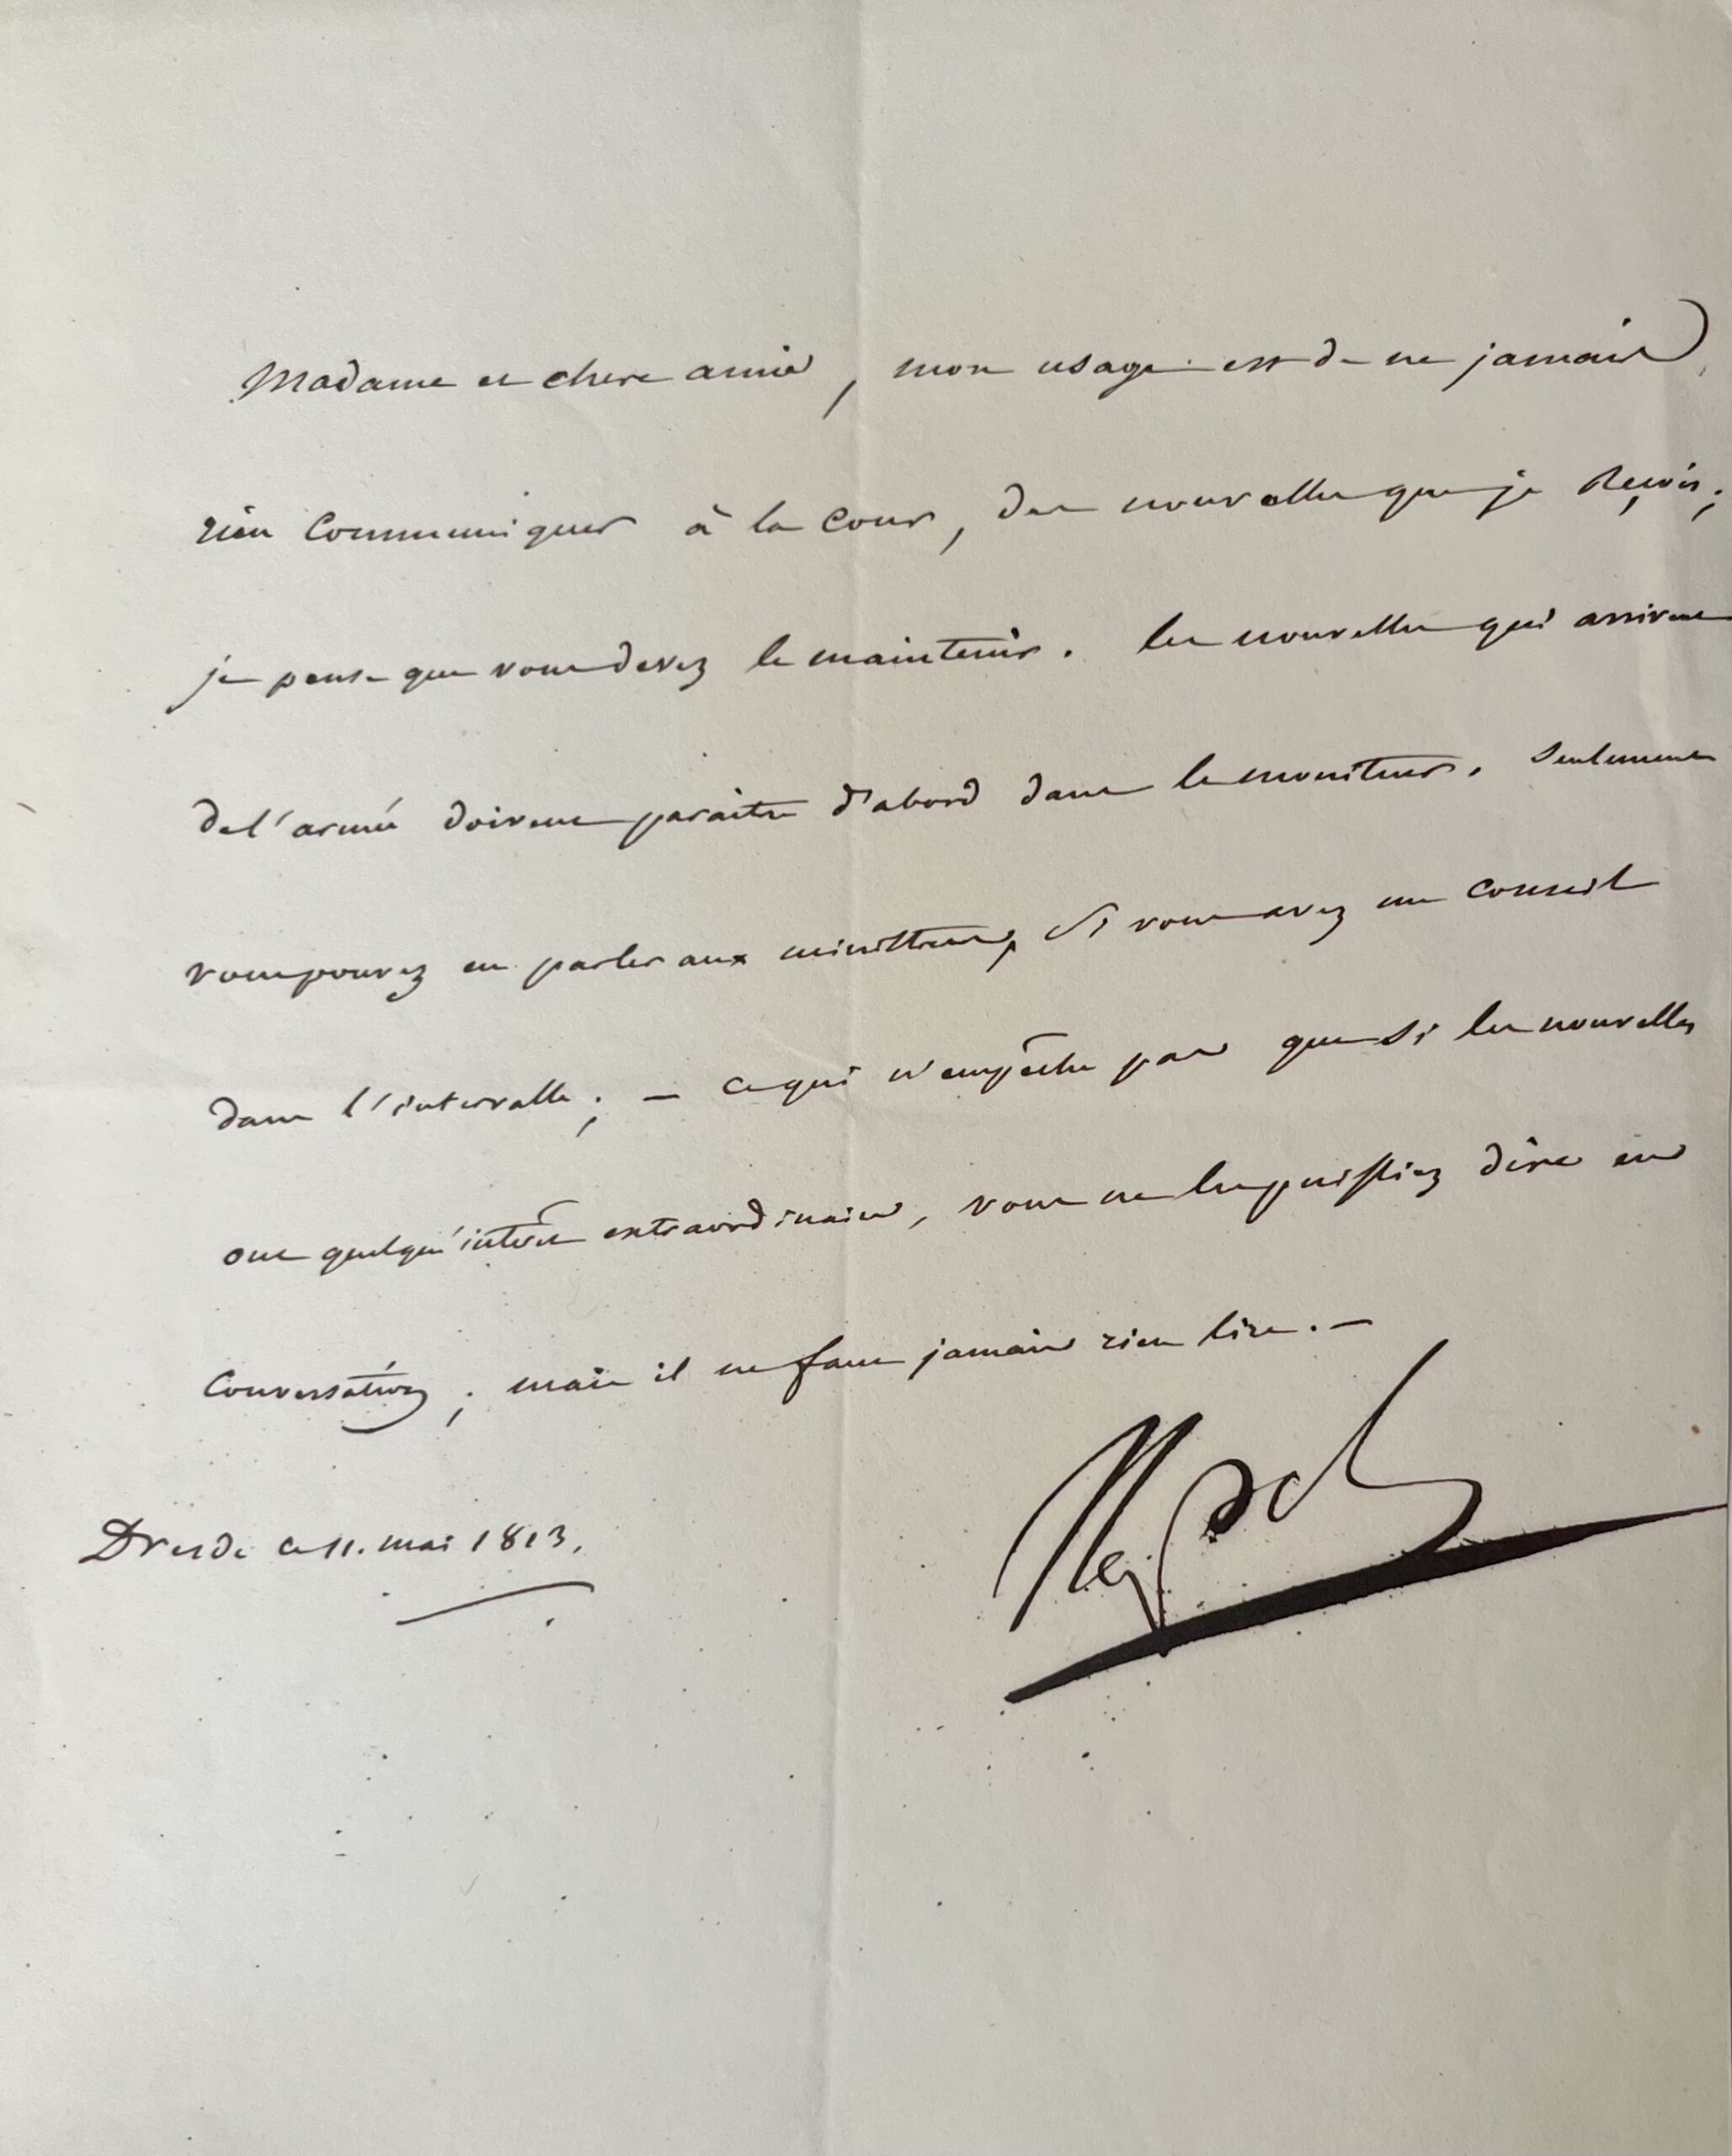 Madame et chere amie, mon usage est de ne jamais
rien Communiquer à la Cour, des nouvelles que je Reçois;
je pense que vous devez le maintenir. les nouvelles qui arrivent
de l'armée doivent paraitre d'abord dans le moniteur. Seulement
vous pouvez en parler aux ministres, Si vous avez un Conseil
dans l'intervalle; — ce qui n'empêche pas que si les nouvelles
ont quelqu'intérêt extraordinaire, vous ne les puissiez dire en
Conversation; mais il ne faut jamais rien lire. —
Dresde ce 11. mai 1813.